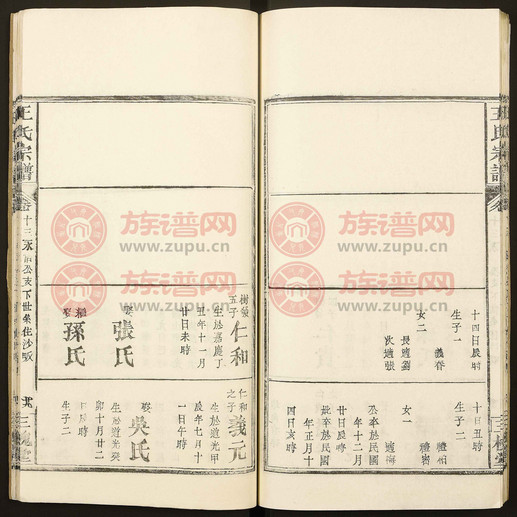 王氏宗譜
卷十三
十四日辰時
生子一
義
女二
長適劉
次適張
十日丑時
生子二
禮
禮
女一
適
卒於民國
年十二月
廿日辰時
卒於民國
年正月十
四日亥時
王氏宗譜
樹
五子
仁和
生於嘉慶丁
丑年十一月
廿日未時
娶
張氏
繼娶
孫氏
仁和之子
義元
生於道光甲
辰年七月十
一日午時
娶
吳氏
生於道光癸
卯十月廿二
日辰時
生子二
三槐堂
三槐堂
族谱网
www.zupu.cn
族谱网
www.zupu.cn
族谱网
www.zupu.cn
族谱网
www.zupu.cn